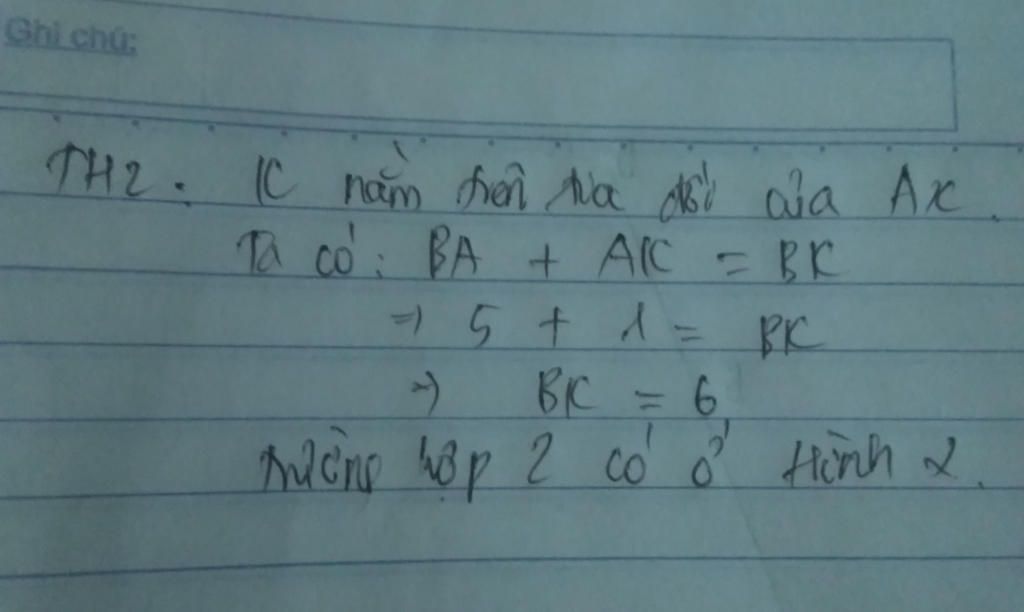 Ghi chú:
TH2. K nằm trên tia đối của Ax.
Ta có: BA + AK = BK
=> 5 + 1 = BK
=> BK = 6
Trường hợp 2 có ở Hình 2.